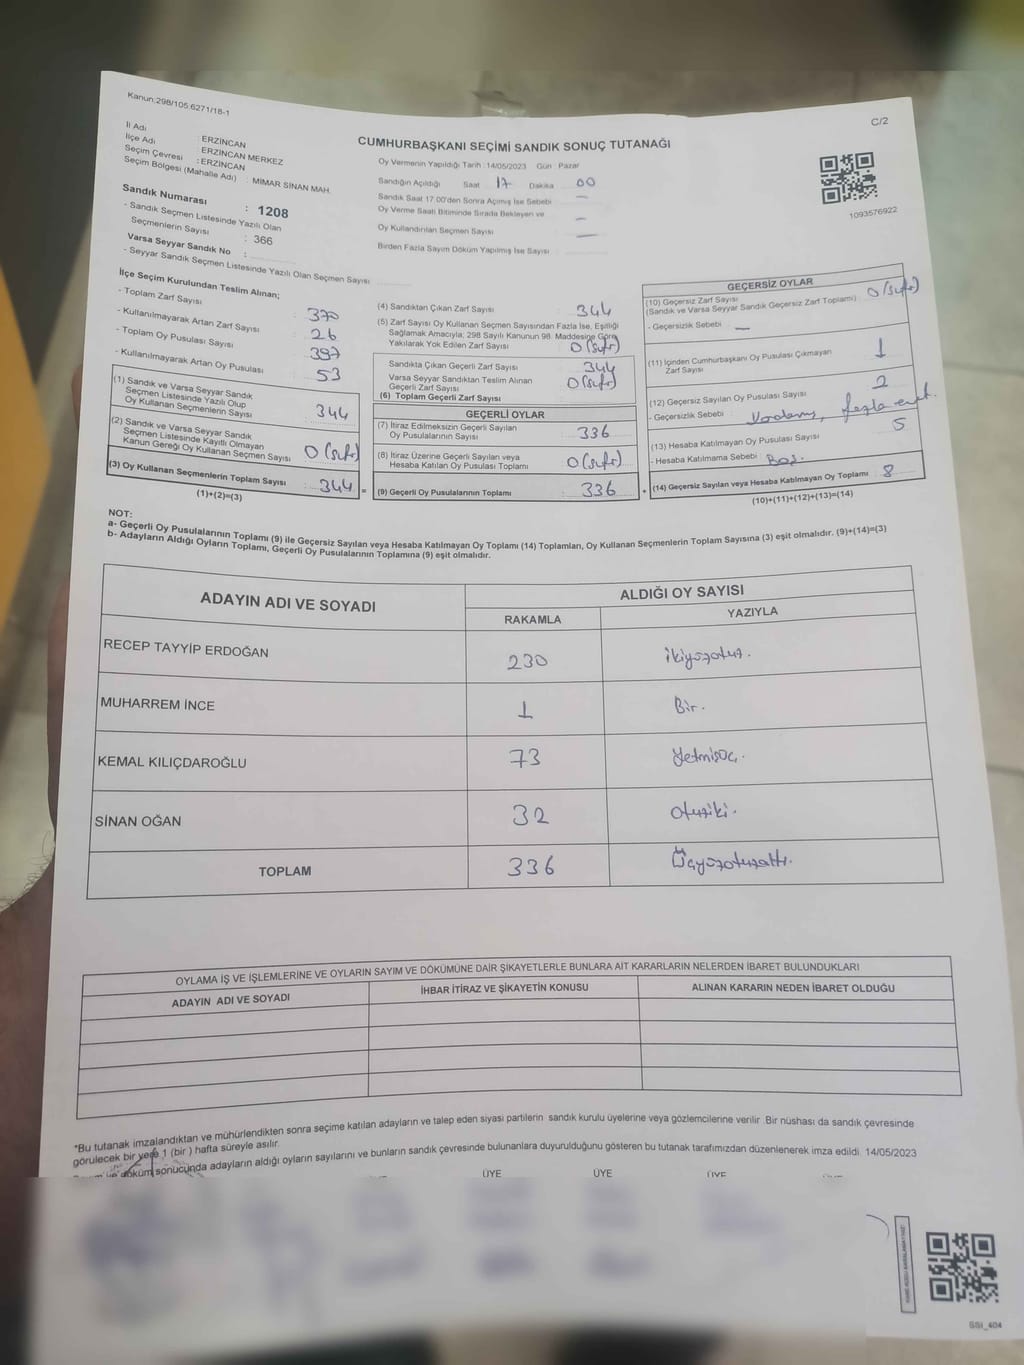 Kanun:298/105;6271/18-1
C/2
İl Adı : ERZİNCAN
İlçe Adı : ERZİNCAN MERKEZ
Seçim Çevresi : ERZİNCAN
Seçim Bölgesi (Mahalle Adı) : MİMAR SİNAN MAH.
Sandık Numarası : 1208
- Sandık Seçmen Listesinde Yazılı Olan
Seçmenlerin Sayısı : 366
Varsa Seyyar Sandık No :
- Seyyar Sandık Seçmen Listesinde Yazılı Olan Seçmen Sayısı
CUMHURBAŞKANI SEÇİMİ SANDIK SONUÇ TUTANAĞI
Oy Vermenin Yapıldığı Tarih :14/05/2023 Gün : Pazar
Sandığın Açıldığı Saat 17 Dakika 00
Sandık Saat 17.00'den Sonra Açılmış İse Sebebi —
Oy Verme Saati Bitiminde Sırada Bekleyen ve
Oy Kullandırılan Seçmen Sayısı —
Birden Fazla Sayım Döküm Yapılmış İse Sayısı —
1093576922
İlçe Seçim Kurulundan Teslim Alınan;
- Toplam Zarf Sayısı : 370
- Kullanılmayarak Artan Zarf Sayısı : 26
- Toplam Oy Pusulası Sayısı : 397
- Kullanılmayarak Artan Oy Pusulası : 53
(1) Sandık ve Varsa Seyyar Sandık
Seçmen Listesinde Yazılı Olup
Oy Kullanan Seçmenlerin Sayısı : 344
(2) Sandık ve Varsa Seyyar Sandık
Seçmen Listesinde Kayıtlı Olmayan
Kanun Gereği Oy Kullanan Seçmen Sayısı : 0 (sıfır)
(3) Oy Kullanan Seçmenlerin Toplam Sayısı : 344 =
(1)+(2)=(3)
(4) Sandıktan Çıkan Zarf Sayısı : 344
(5) Zarf Sayısı Oy Kullanan Seçmen Sayısından Fazla İse, Eşitliği
Sağlamak Amacıyla; 298 Sayılı Kanunun 98. Maddesine Göre
Yakılarak Yok Edilen Zarf Sayısı : 0 (sıfır)
Sandıkta Çıkan Geçerli Zarf Sayısı : 344
Varsa Seyyar Sandıktan Teslim Alınan
Geçerli Zarf Sayısı : 0 (sıfır)
(6) Toplam Geçerli Zarf Sayısı :
GEÇERLİ OYLAR
(7) İtiraz Edilmeksizin Geçerli Sayılan
Oy Pusulalarının Sayısı : 336
(8) İtiraz Üzerine Geçerli Sayılan veya
Hesaba Katılan Oy Pusulası Toplamı : 0 (sıfır)
(9) Geçerli Oy Pusulalarının Toplamı : 336 +
GEÇERSİZ OYLAR
(10) Geçersiz Zarf Sayısı
(Sandık ve Varsa Seyyar Sandık Geçersiz Zarf Toplamı) : 0 (sıfır)
- Geçersizlik Sebebi : —
(11) İçinden Cumhurbaşkanı Oy Pusulası Çıkmayan
Zarf Sayısı : 1
(12) Geçersiz Sayılan Oy Pusulası Sayısı : 2
- Geçersizlik Sebebi : fazla evet.
(13) Hesaba Katılmayan Oy Pusulası Sayısı : 5
- Hesaba Katılmama Sebebi : Boş.
(14) Geçersiz Sayılan veya Hesaba Katılmayan Oy Toplamı : 8
(10)+(11)+(12)+(13)=(14)
NOT:
a- Geçerli Oy Pusulalarının Toplamı (9) ile Geçersiz Sayılan veya Hesaba Katılmayan Oy Toplamı (14) Toplamları, Oy Kullanan Seçmenlerin Toplam Sayısına (3) eşit olmalıdır. (9)+(14)=(3)
b- Adayların Aldığı Oyların Toplamı, Geçerli Oy Pusulalarının Toplamına (9) eşit olmalıdır.
ADAYIN ADI VE SOYADI
ALDIĞI OY SAYISI
RAKAMLA YAZIYLA
RECEP TAYYİP ERDOĞAN 230 ikiyüzotuz.
MUHARREM İNCE 1 Bir.
KEMAL KILIÇDAROĞLU 73 Yetmişüç.
SİNAN OĞAN 32 otuziki.
TOPLAM 336 Üçyüzotuzaltı.
OYLAMA İŞ VE İŞLEMLERİNE VE OYLARIN SAYIM VE DÖKÜMÜNE DAİR ŞİKAYETLERLE BUNLARA AİT KARARLARIN NELERDEN İBARET BULUNDUKLARI
ADAYIN ADI VE SOYADI İHBAR İTİRAZ VE ŞİKAYETİN KONUSU ALINAN KARARIN NEDEN İBARET OLDUĞU
*Bu tutanak imzalandıktan ve mühürlendikten sonra seçime katılan adayların ve talep eden siyasi partilerin sandık kurulu üyelerine veya gözlemcilerine verilir. Bir nüshası da sandık çevresinde
görülecek bir yere 1 (bir ) hafta süreyle asılır.
ve döküm sonucunda adayların aldığı oyların sayılarını ve bunların sandık çevresinde bulunanlara duyurulduğunu gösteren bu tutanak tarafımızdan düzenlenerek imza edildi. 14/05/2023
ÜYE ÜYE ÜYE
SSI_404